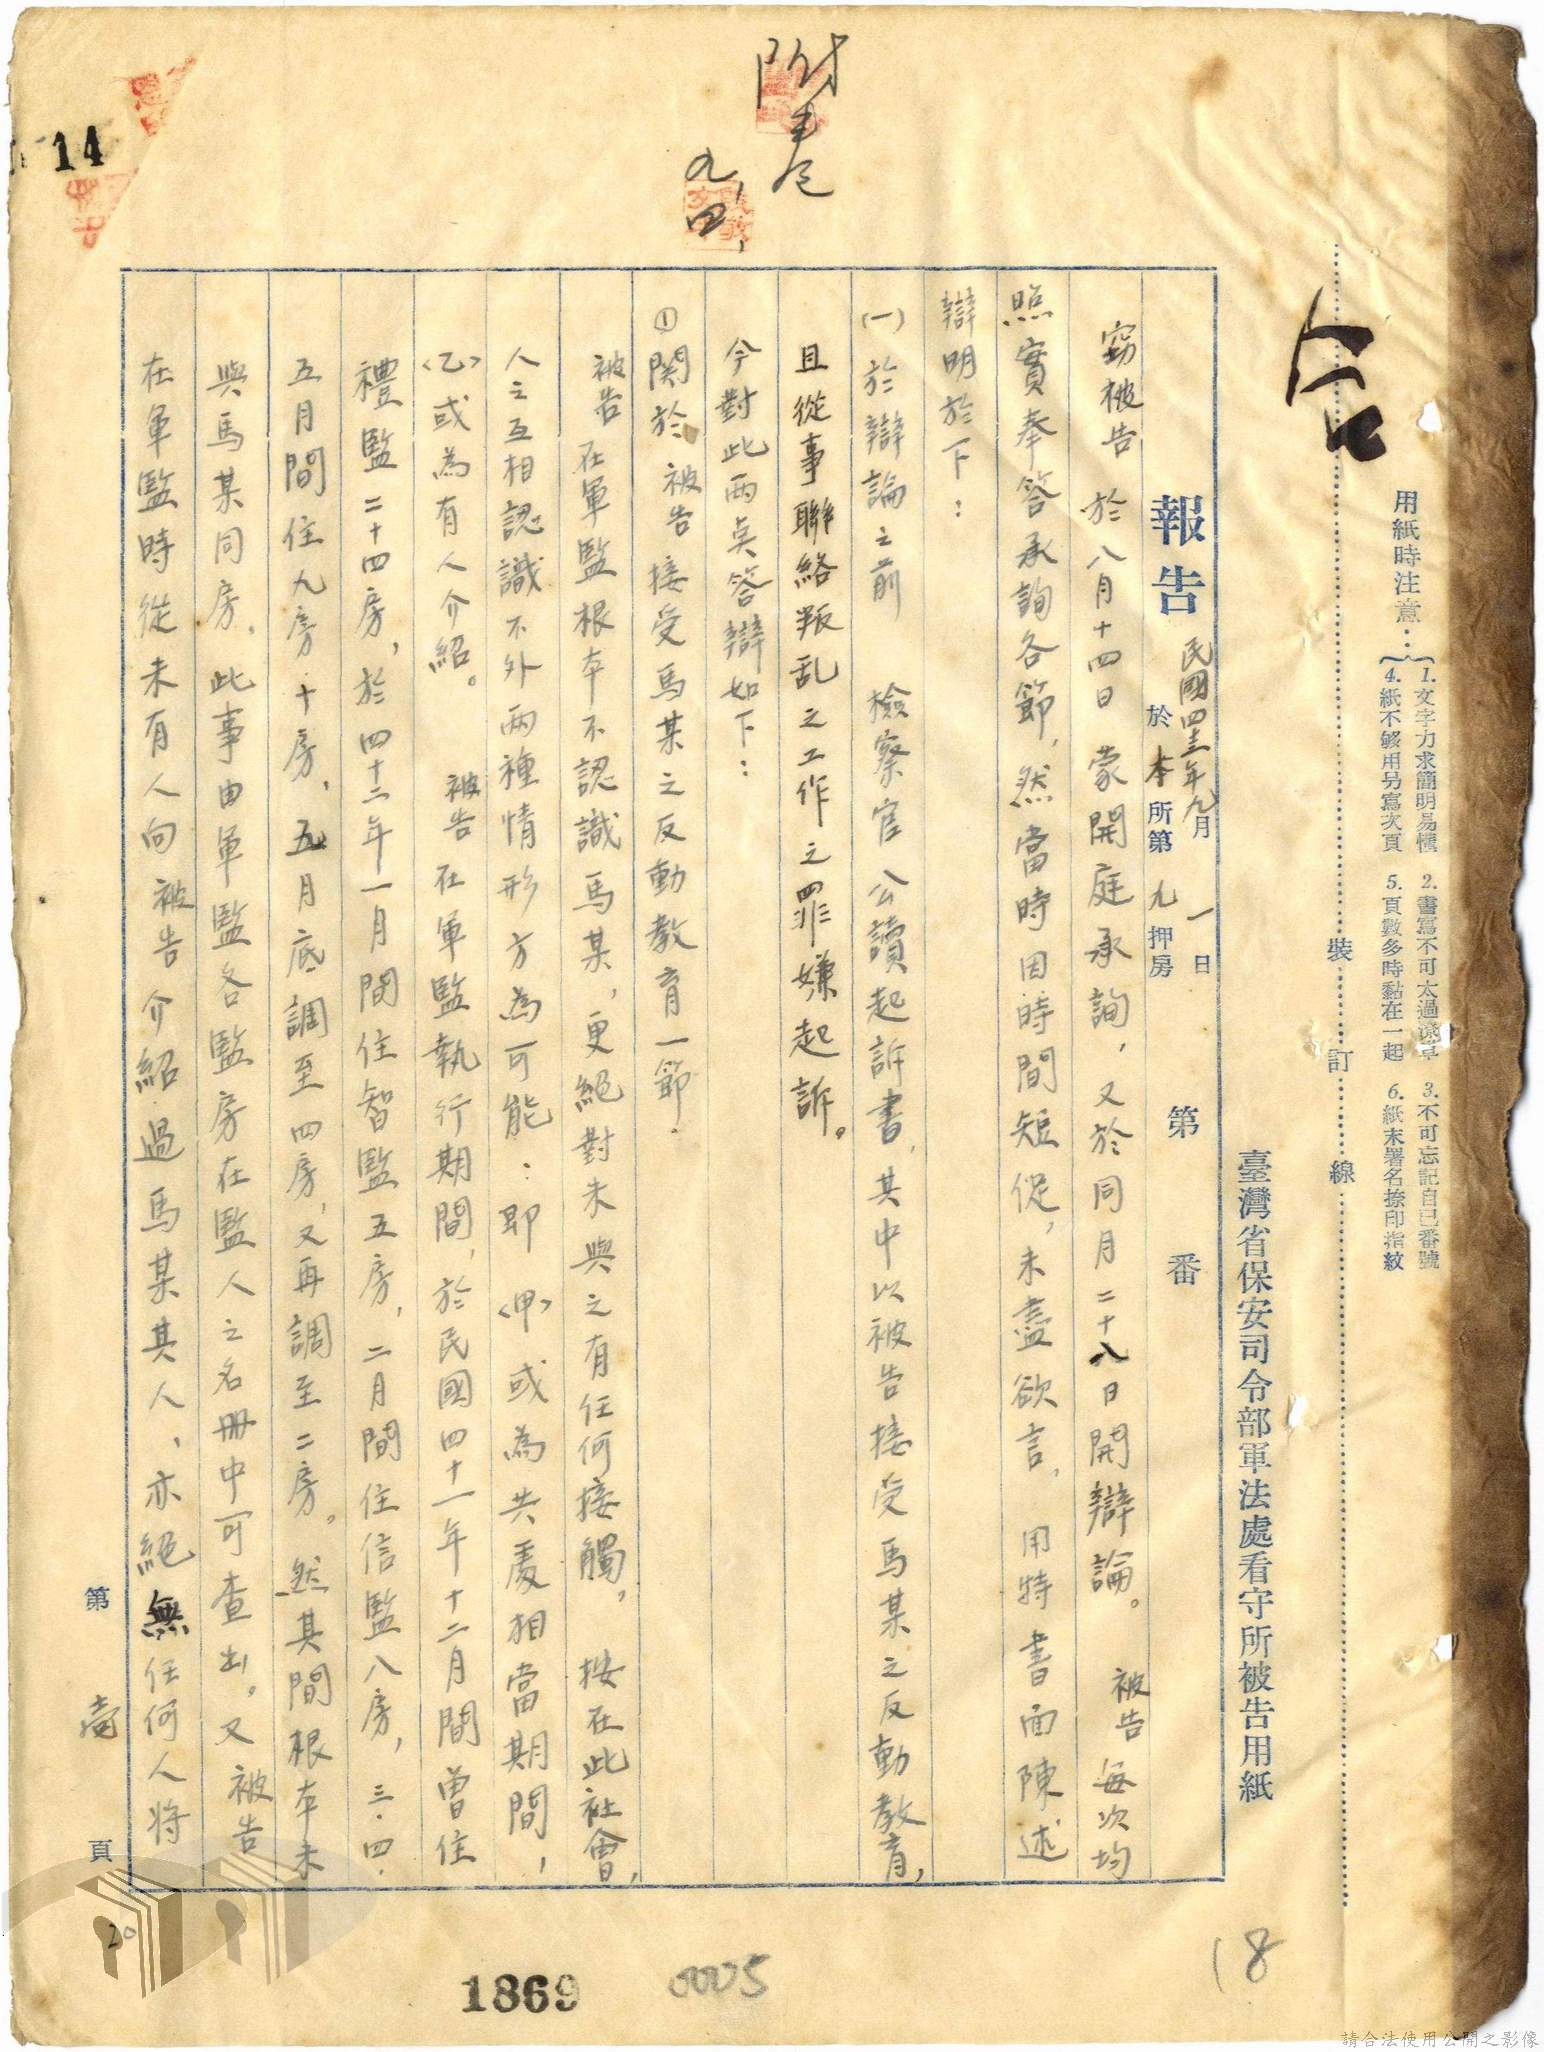 用紙時注意：
1.文字力求簡明易懂 2.書寫不可太過潦草 3.不可忘記自己番號
4.紙不够用另寫次頁 5.頁數多時黏在一起 6.紙末署名捺印指紋
裝訂線
臺灣省保安司令部軍法處看守所被告用紙
報告 民國四十三年九月一日 於本所第九押房 第 番
竊被告於八月十四日蒙開庭承詢，又於同月二十八日開辯論。被告每次均
照實奉答承詢各節，然當時因時間短促，未盡欲言，用特書面陳述
辯明於下：
(一)於辯論之前 檢察官 公讀起訴書，其中以被告接受馬某之反動教育，
且從事聯絡叛乱之工作之罪嫌起訴。
今對此兩奌答辯如下：
①関於被告接受馬某之反動教育一節．
被告在軍監根本不認識馬某，更絕對未與之有任何接觸，按在此社會，
人之互相認識不外兩種情形方為可能：即〈甲〉或為共處相當期間，
〈乙〉或為有人介紹。被告在軍監執行期間，於民國四十一年十二月間曾住
禮監二十四房，於四十二年一月間住智監五房，二月間住信監八房，三．四．
五月間住九房十房，五月底調至四房，又再調至二房。然其間根本未
與馬某同房，此事由軍監各監房在監人之名冊中可查出。又被告
在軍監時從未有人向被告介紹過馬某其人，亦絕無任何人將
第 壹 頁
附卷
九，四，
14
20
1869
0005
18
請合法使用公開之影像